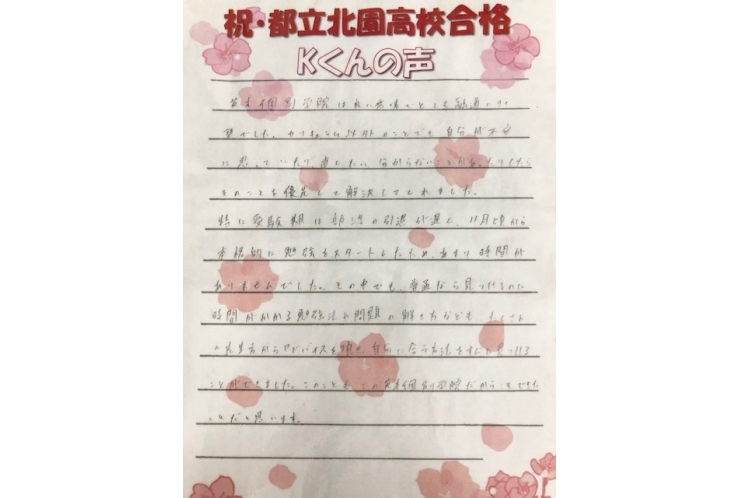 祝・都立北園高校合格
Kくんの声
個別学院は良い意味でとても融通がきく
塾でした。カリキュラム以外のことでも自分が不安
に思っていたり、直したい、分からないことがあったりしたら
そのことを優先して解決してくれました。
特に受験期は部活の引退が遅く、11月頃から
本格的に勉強をスタートしたため、あまり時間が
ありませんでした。その中でも、普通なら見つけるのに
時間がかかる勉強法や問題の解き方なども、たくさん
の先生方からアドバイスを頂き、自分に合う方法をすぐに見つける
ことができました。このことも、この個別学院だからこそできた
ことだと思います。